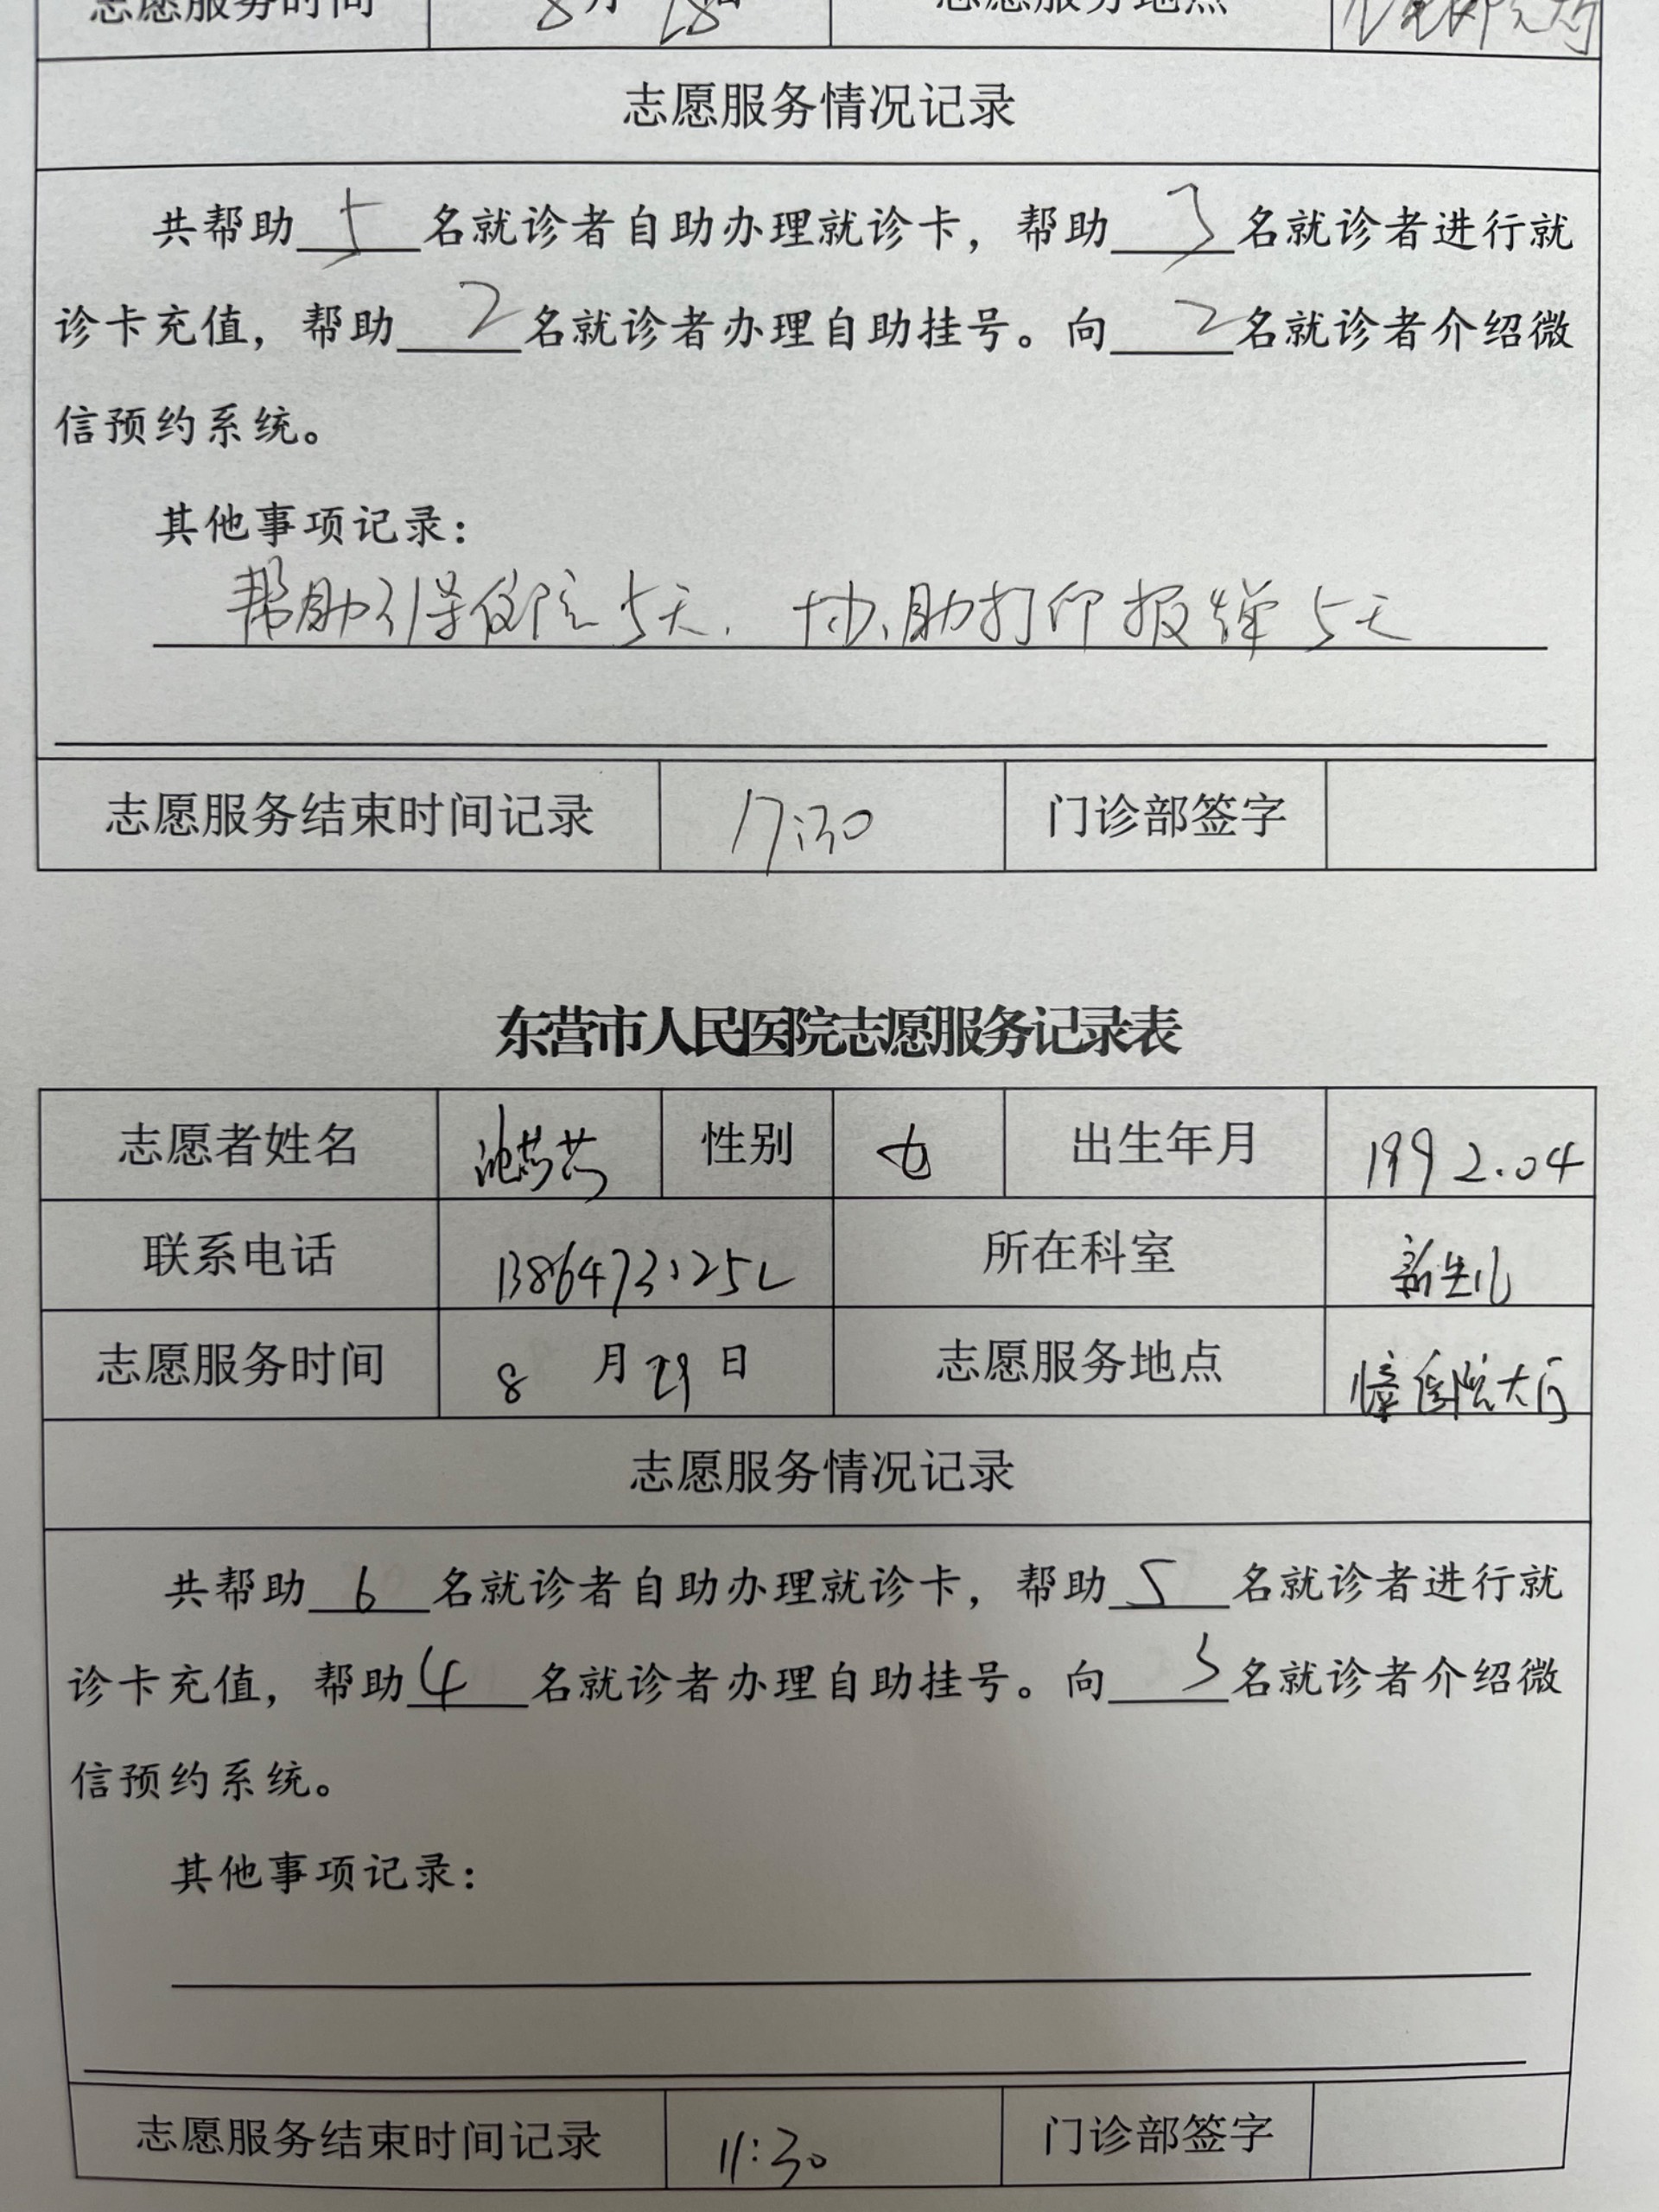 志愿服务时间 8月 28日 志愿服务地点
志愿服务情况记录
共帮助 5 名就诊者自助办理就诊卡，帮助 3 名就诊者进行就
诊卡充值，帮助 2 名就诊者办理自助挂号。向 2 名就诊者介绍微
信预约系统。
其他事项记录：
帮助引导住院5天. 协助打印报单5天
志愿服务结束时间记录 17:30 门诊部签字
东营市人民医院志愿服务记录表
志愿者姓名 性别 女 出生年月 1992.04
联系电话 所在科室 新生儿
志愿服务时间 8 月 29 日 志愿服务地点 院大厅
志愿服务情况记录
共帮助 6 名就诊者自助办理就诊卡，帮助 5 名就诊者进行就
诊卡充值，帮助 4 名就诊者办理自助挂号。向 3 名就诊者介绍微
信预约系统。
其他事项记录：
志愿服务结束时间记录 11:30 门诊部签字